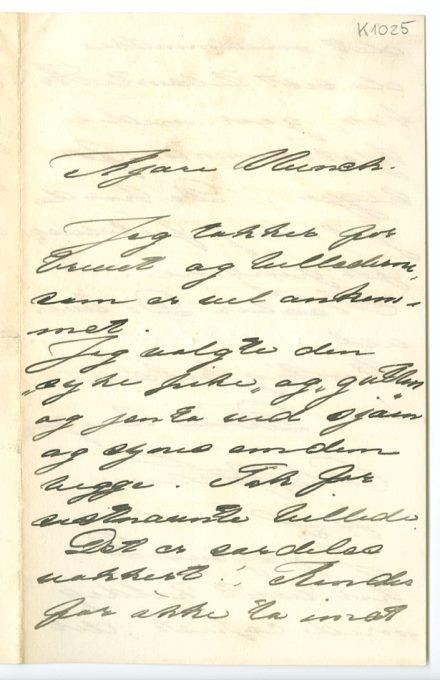 K1025
Kjære Munck.
Jeg takker for
brevet og billederne,
som er vel ankom-
met.
Jeg valgte den
„syke pike„ og „gutten
og jenta ved sjøen
og synes om dem
begge. Tak for
sistnævnte billede.
Det er særdeles
vakkert!
for ikke ta imot